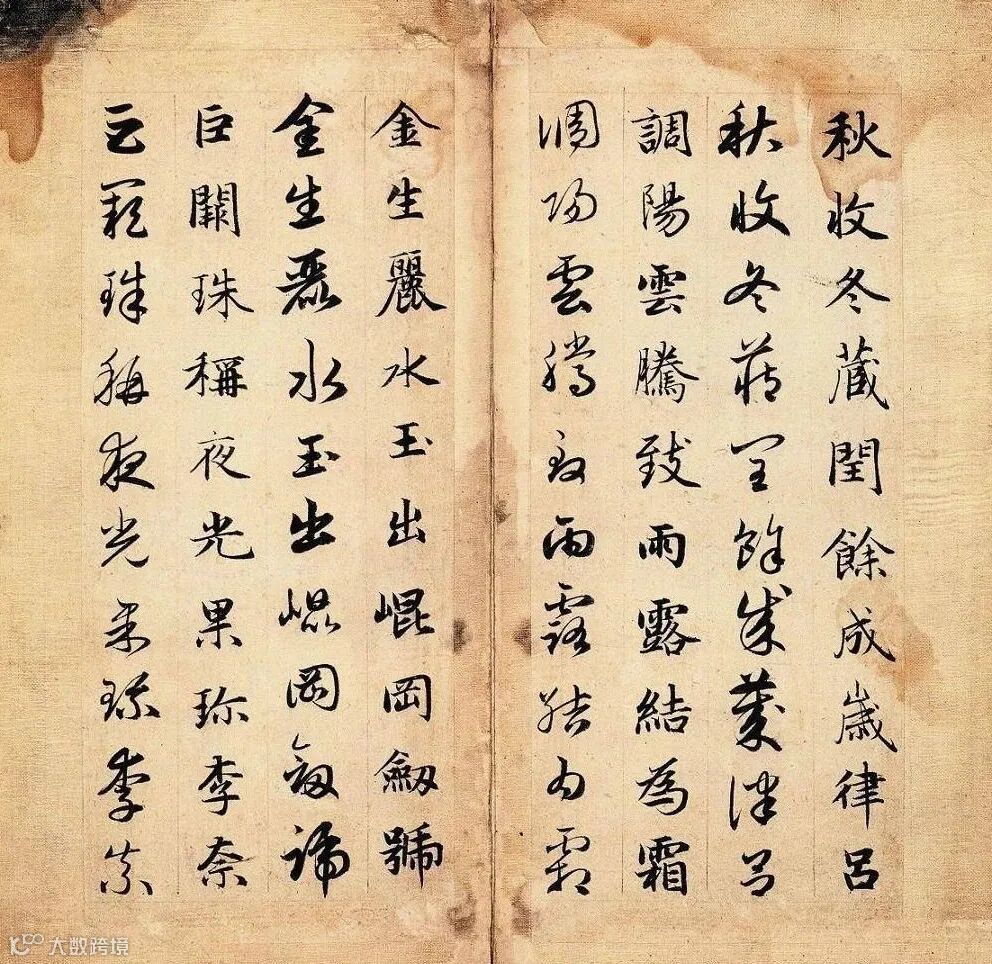 秋收冬蔵閏餘成歲律呂
秋收冬蔵閏餘成歲律呂
調陽雲騰致雨露結為霜
調陽雲騰致雨露結為霜
金生麗水玉出崐岡劒號
金生麗水玉出崐岡劒號
巨闕珠稱夜光果珎李柰
巨闕珠稱夜光果珎李柰
大数跨境